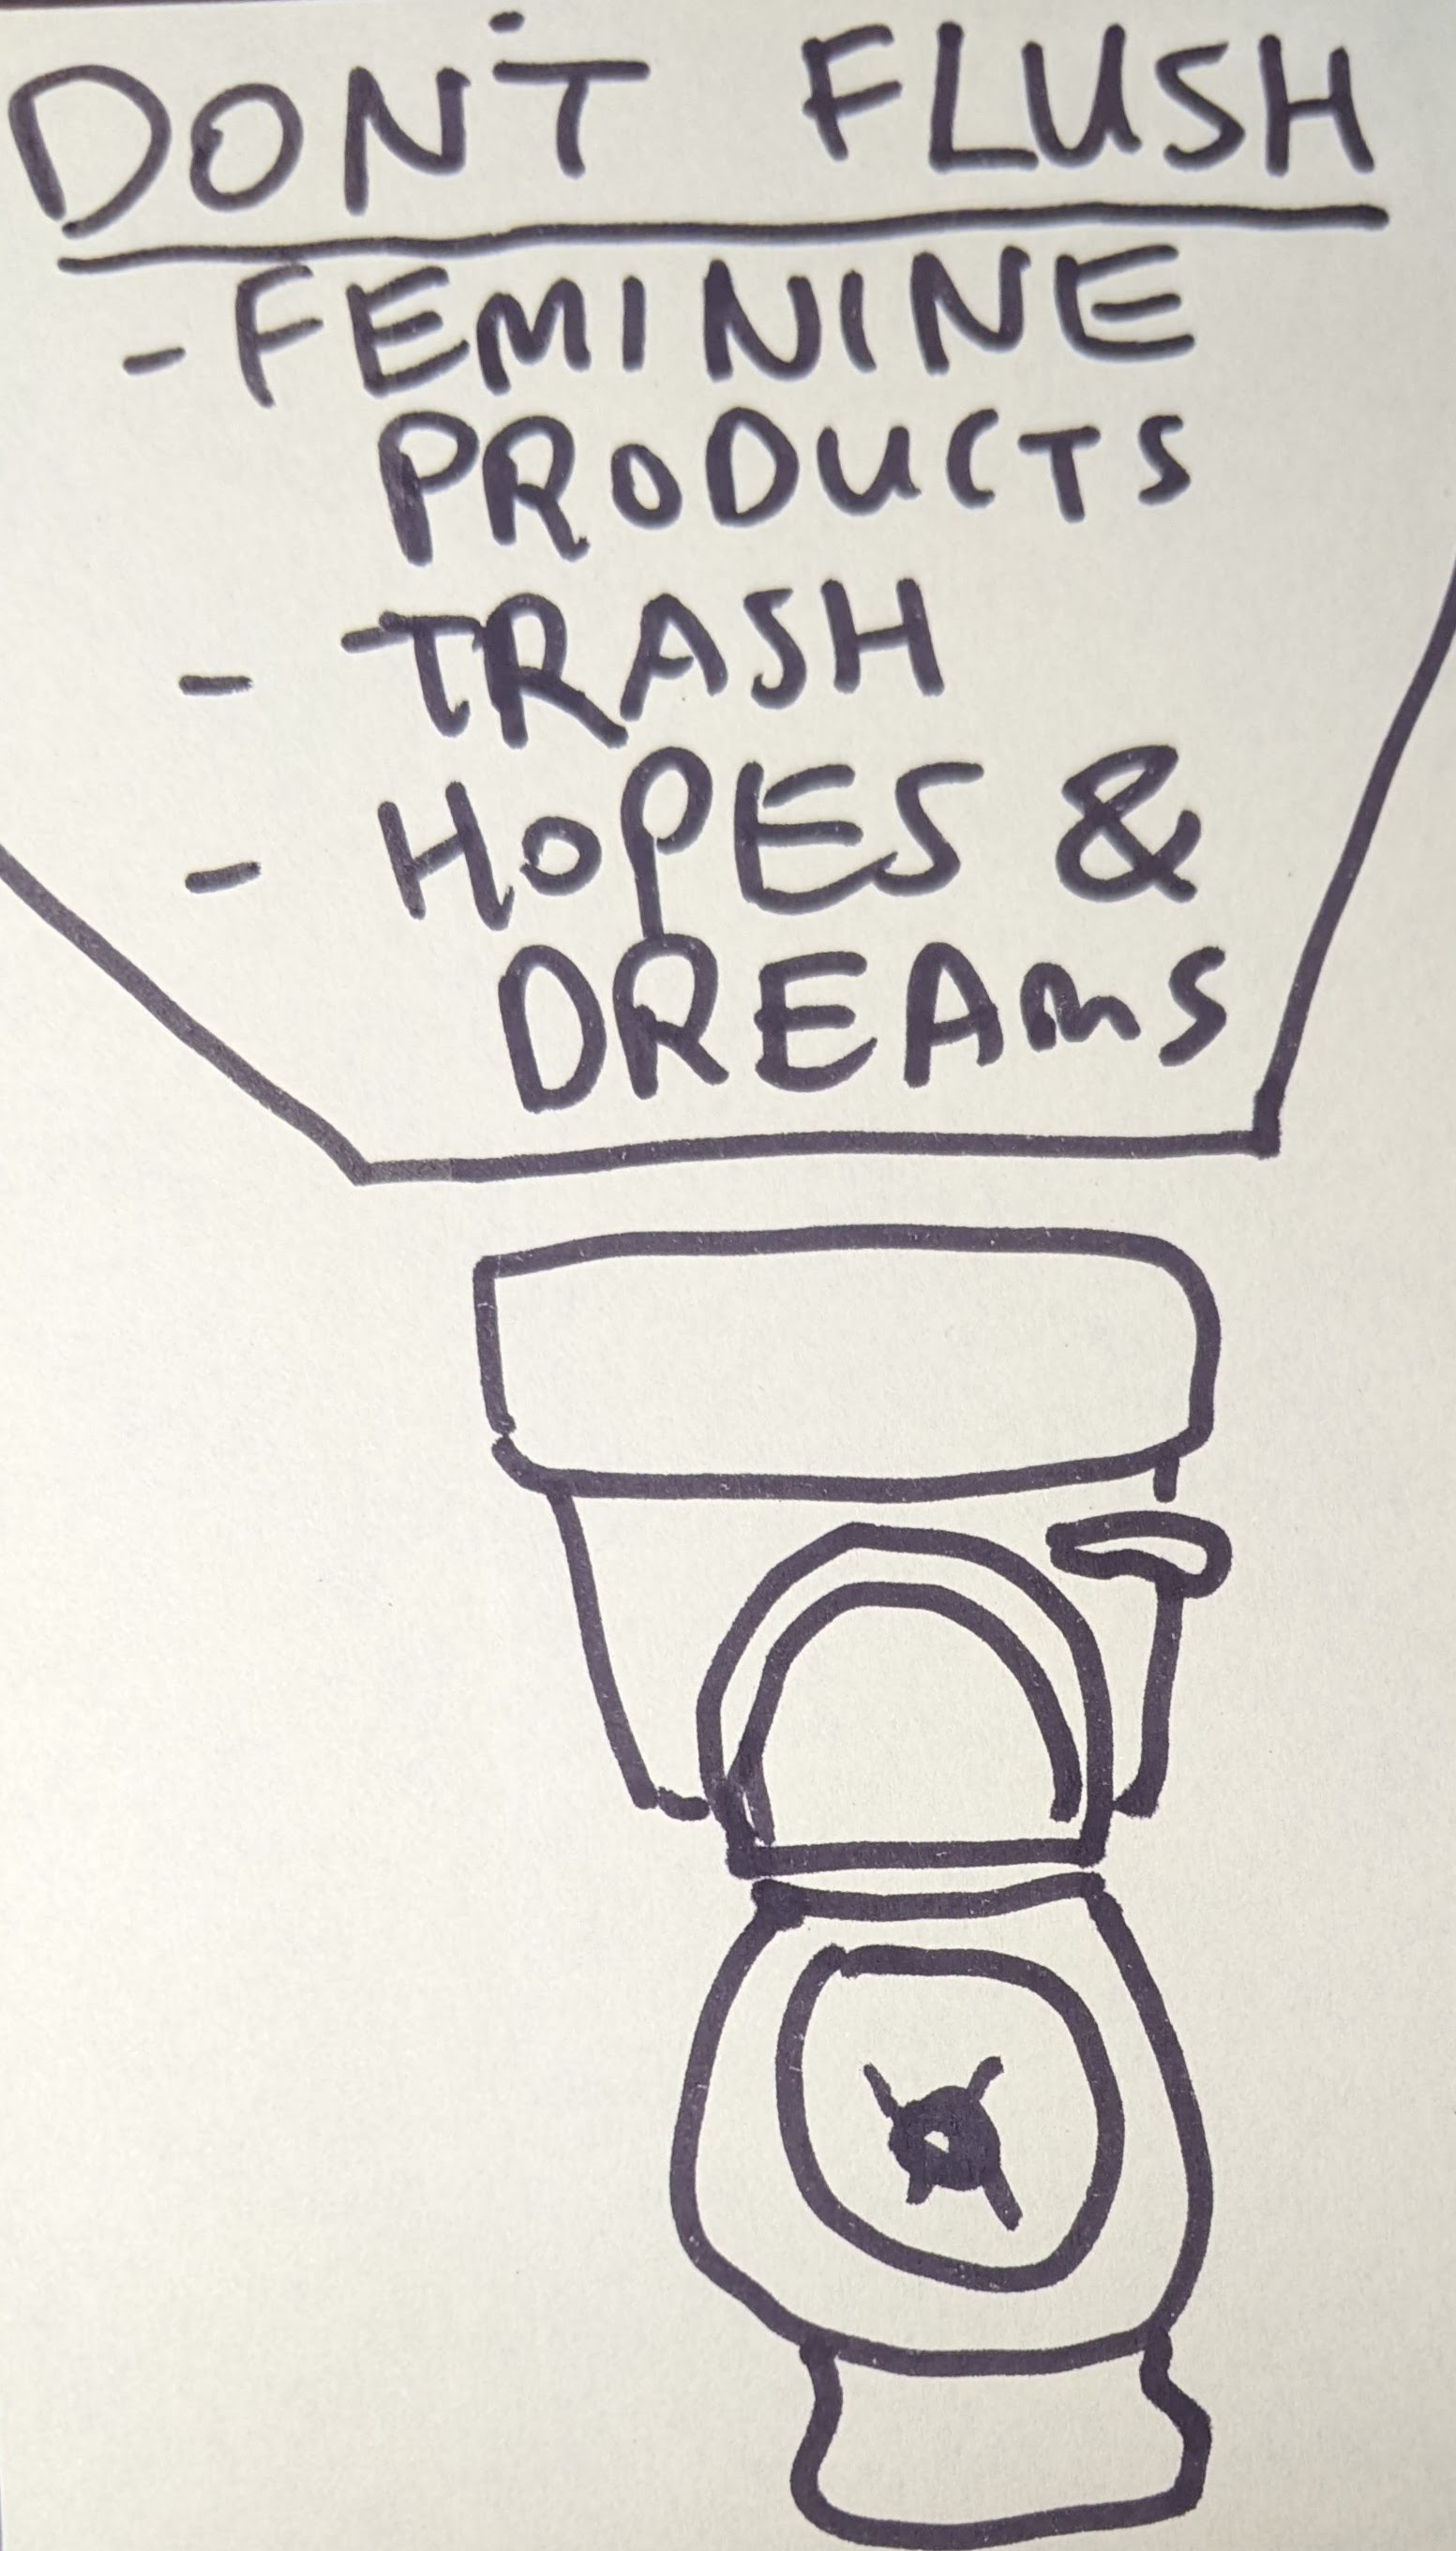 DON'T FLUSH
- FEMININE
PRODUCTS
- TRASH
- HOPES &
DREAMS